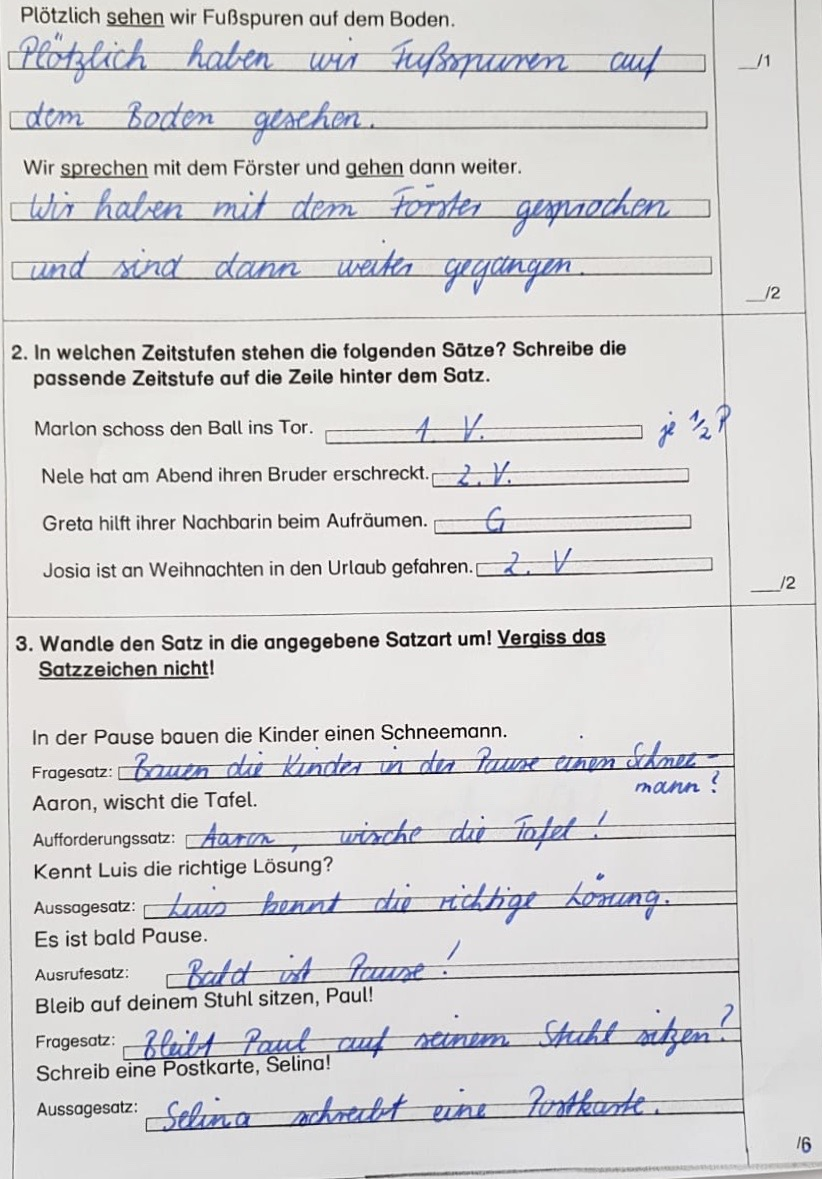 Plötzlich sehen wir Fußspuren auf dem Boden.
Plötzlich haben wir Fußspuren auf
__/1
dem Boden gesehen.
Wir sprechen mit dem Förster und gehen dann weiter.
Wir haben mit dem Förster gesprochen
und sind dann weiter gegangen.
__/2
2. In welchen Zeitstufen stehen die folgenden Sätze? Schreibe die
passende Zeitstufe auf die Zeile hinter dem Satz.
Marlon schoss den Ball ins Tor. 1. V. je 1/2 P
Nele hat am Abend ihren Bruder erschreckt. 2. V.
Greta hilft ihrer Nachbarin beim Aufräumen. G
Josia ist an Weihnachten in den Urlaub gefahren. 2. V
___/2
3. Wandle den Satz in die angegebene Satzart um! Vergiss das
Satzzeichen nicht!
In der Pause bauen die Kinder einen Schneemann.
Fragesatz: Bauen die Kinder in der Pause einen Schnee-
mann?
Aaron, wischt die Tafel.
Aufforderungssatz: Aaron, wische die Tafel!
Kennt Luis die richtige Lösung?
Aussagesatz: Luis kennt die richtige Lösung.
Es ist bald Pause.
Ausrufesatz: Bald ist Pause!
Bleib auf deinem Stuhl sitzen, Paul!
Fragesatz: Bleibt Paul auf seinem Stuhl sitzen?
Schreib eine Postkarte, Selina!
Aussagesatz: Selina schreibt eine Postkarte.
/6